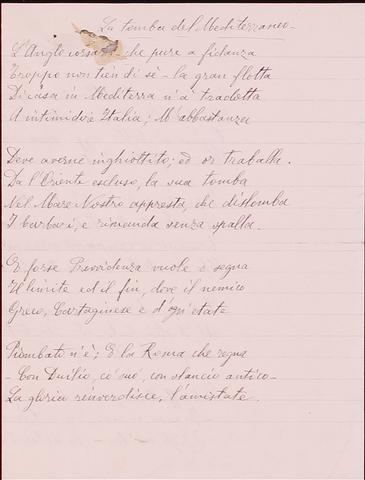 La tomba del Mediterraneo -
L'Anglo corsa che pure a fidanza
Troppo non tien di sè - la gran flotta
Di casa in Mediterra n'à tradotta
A intimidire Italia; M'abbastanza
Deve averne inghiottito; ed or traballa.
Da l'Oriente escluso, la sua tomba
Nel Mare Nostro appresta, che dislomba
I barbari, e rimanda senza spalla.
E forse Provvidenza vuole e segna
Il limite ed il fin, dove il nemico
Greco, Cartaginese e d'ogn'etate
Piombato n'è; E la Roma che regna
- Con Duilio, co' suo', con slancio antico -
La gloria rinverdisce, l'amistate.